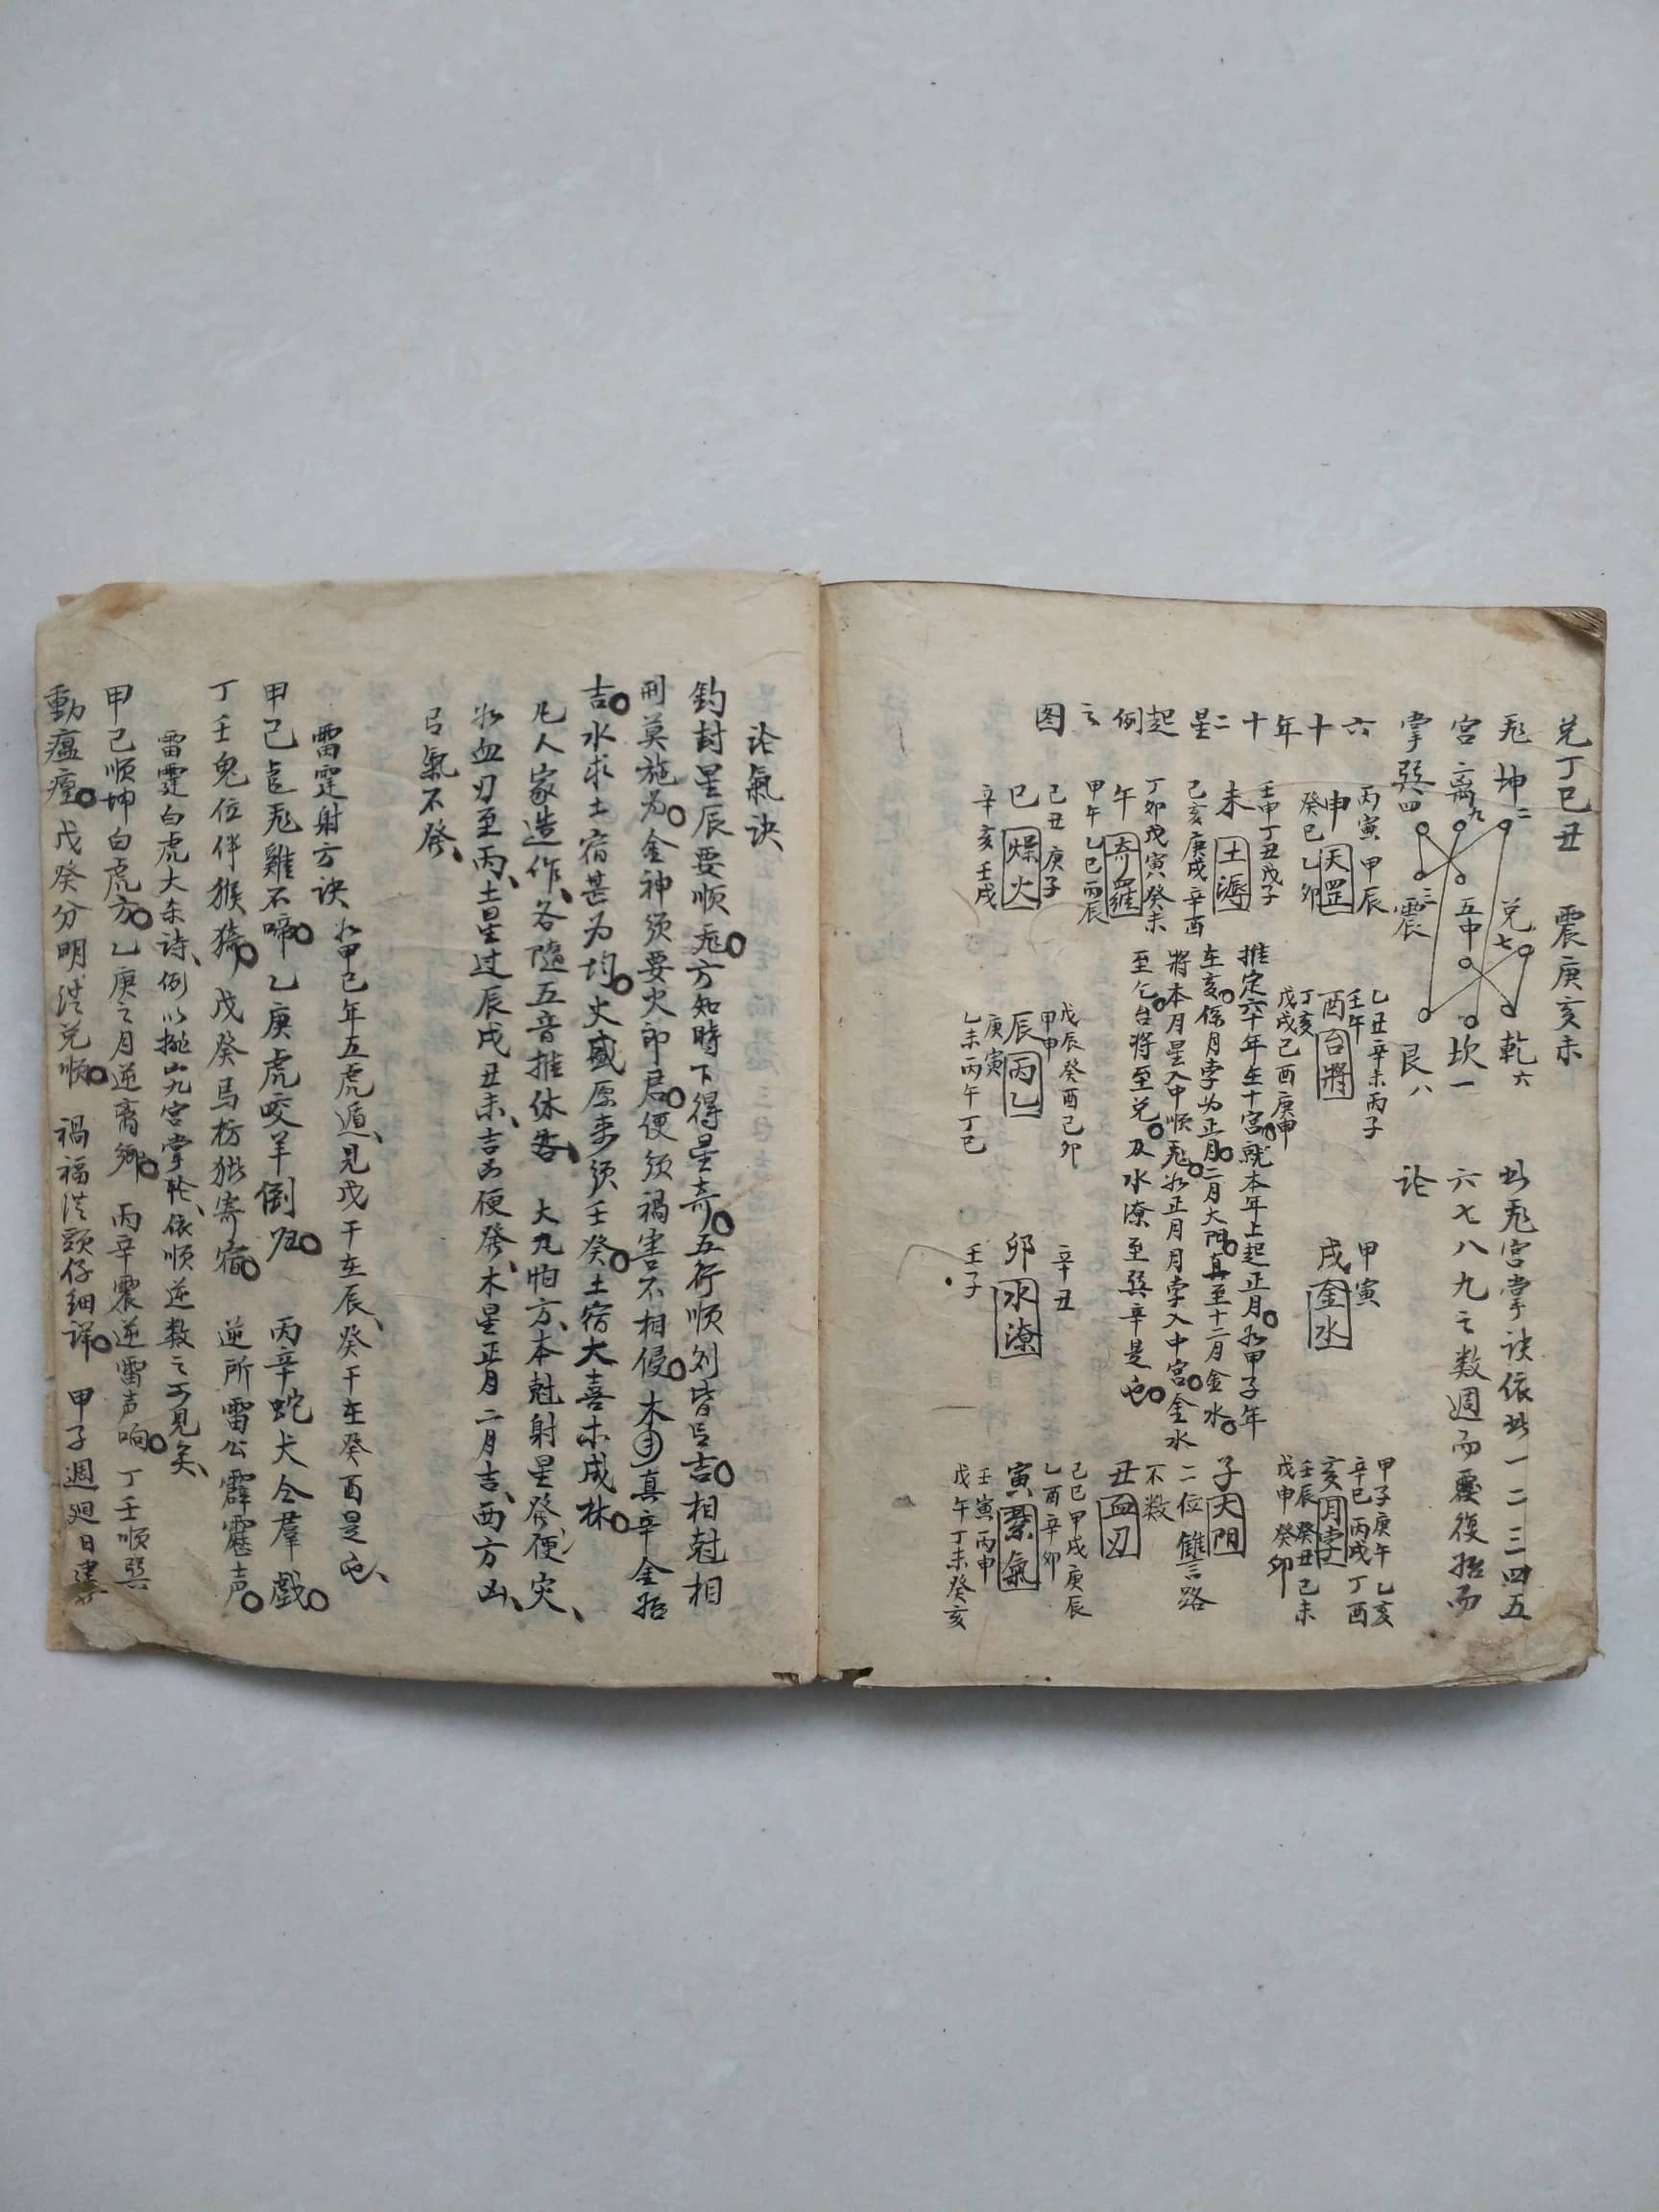 兑丁巳丑　震庚亥未
飛　坤二　兑七　乾六
宮　離九　五中　坎一
掌　巽四　三震　艮八
此飛宮掌诀依此一二三四五
六七八九之数週而复復始而
论
六十年十二星起例之图
丙寅　甲辰
申　天罡
癸巳　乙卯
壬申丁丑戊子
未　土溽
己亥庚戌辛酉
丁卯戊寅癸未
午　奇羅
甲午乙巳丙辰
己丑庚子
巳　燥火
辛亥壬戌
乙丑辛未丙子
壬午
酉　台將
丁亥
戊戌己酉庚申
推定六十年在十宮就本年上起正月如甲子年
在亥係月孛为正月二月大門真至十二月金水
將本月星入中順飛如正月月孛入中宮金水
至乞台將至兑及水潦至巽辛是也
戊辰癸酉己卯
甲申
辰　丙乙
庚寅
乙未丙午丁巳
甲寅
戌　金水
辛丑
卯　水潦
壬子
甲子庚午乙亥
辛巳丙戌丁酉
亥　月孛
壬辰癸丑己未
戊申癸卯
子　天門
二位雔言路
不数
丑　血刃
己巳甲戌庚辰
乙酉辛卯
寅　紫氣
壬寅丙申
戊午丁未癸亥
论氣诀
钓封星辰要順飛方知時下得星奇五行順列皆曰吉相尅相
刑莫施为金神须要火印君便须禍害不相侵木真辛金始
吉水求土宿甚为均火盛原来须壬癸土宿大喜木成林
凡人家造作各隨五音推休咎　大九怕方本尅射星發便灾
如血刃至丙土星过辰戌丑未吉凶便發木星正月二月吉西方凶
曰氣不發
雷霆射方诀　如甲己年五虎遁見戊干在辰癸干在癸酉是也
甲己飛雞不啼　乙庚虎咬羊倒归　丙辛蛇犬仝羣戲
丁壬鬼位伴猴猗　戊癸馬枋猴寄宿　逆所雷公霹靂声
雷霆白虎大杀诗例以挨山九宮掌轮依順逆数之可見矣
甲己順坤白虎方　乙庚之月逆离鄉　丙辛震逆雷声响　丁壬順巽
動瘟瘟　戊癸分明从兑順　禍福从頭仔细详　甲子週廻日建